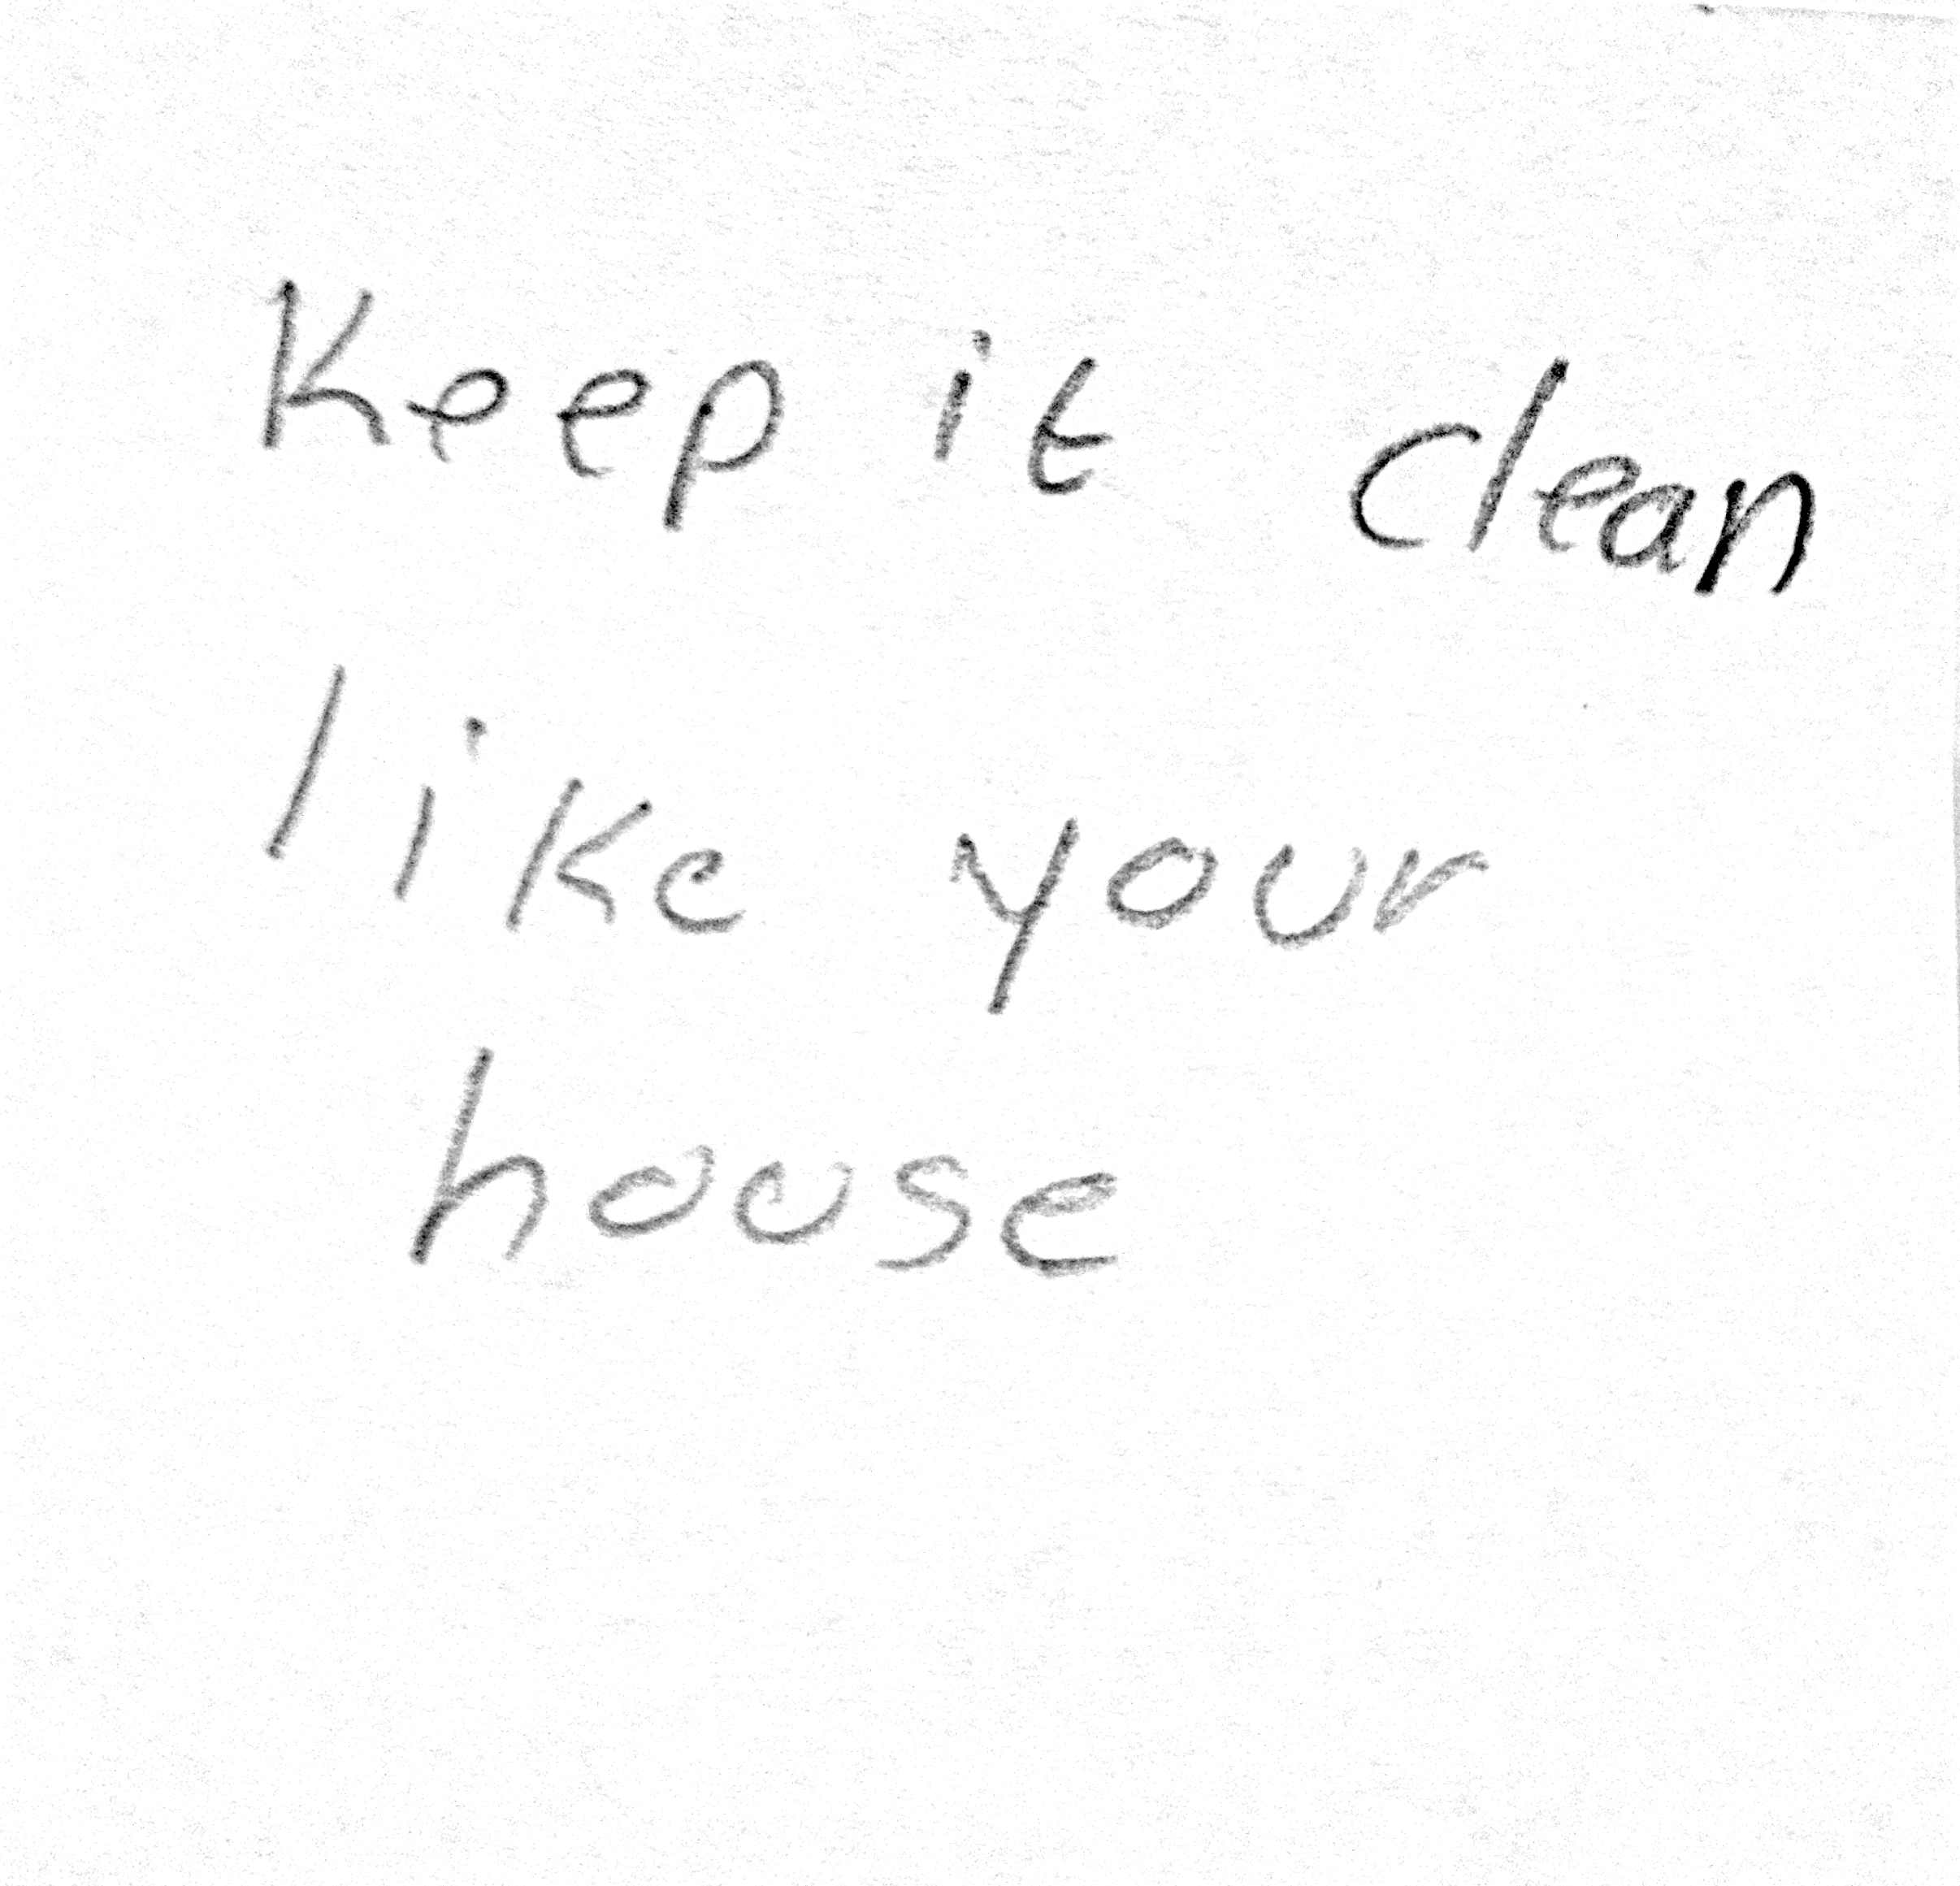 Keep it clean
like your
house